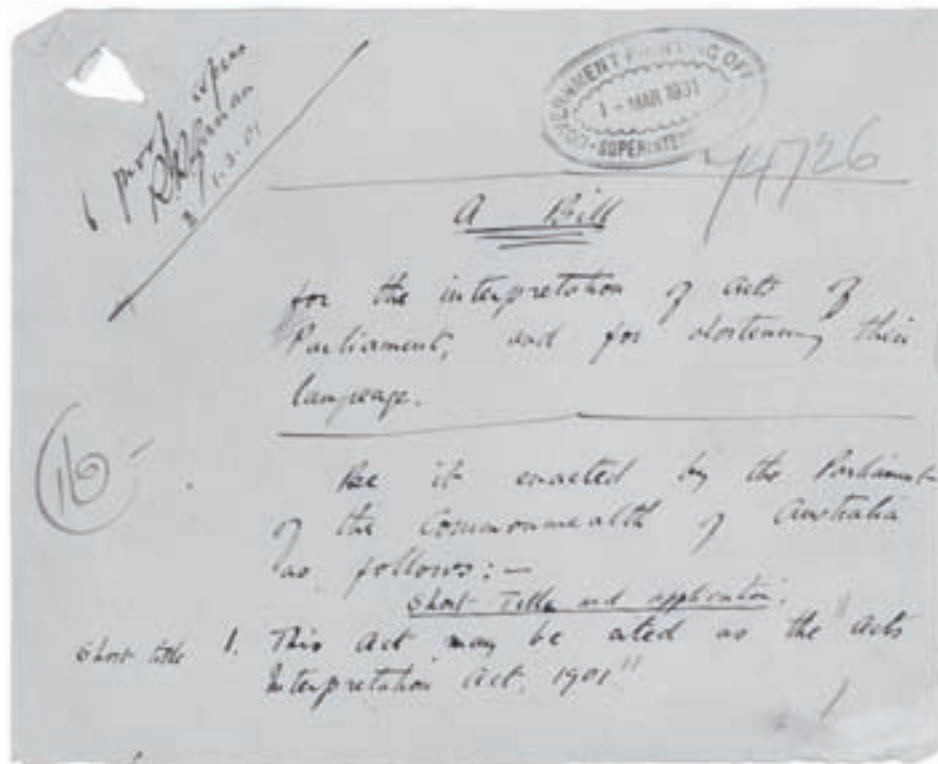 6 proof copies
RR Garran
1.3.01
GOVERNMENT PRINTING OFF
1 - MAR 1901
SUPERINTE
74726
A Bill
for the interpretation of Acts of
Parliament, and for shortening their
language.
16
Be it enacted by the Parliament
of the Commonwealth of Australia
as follows:—
Short Title and application.
Short title 1. This Act may be cited as the "Acts
Interpretation Act, 1901"